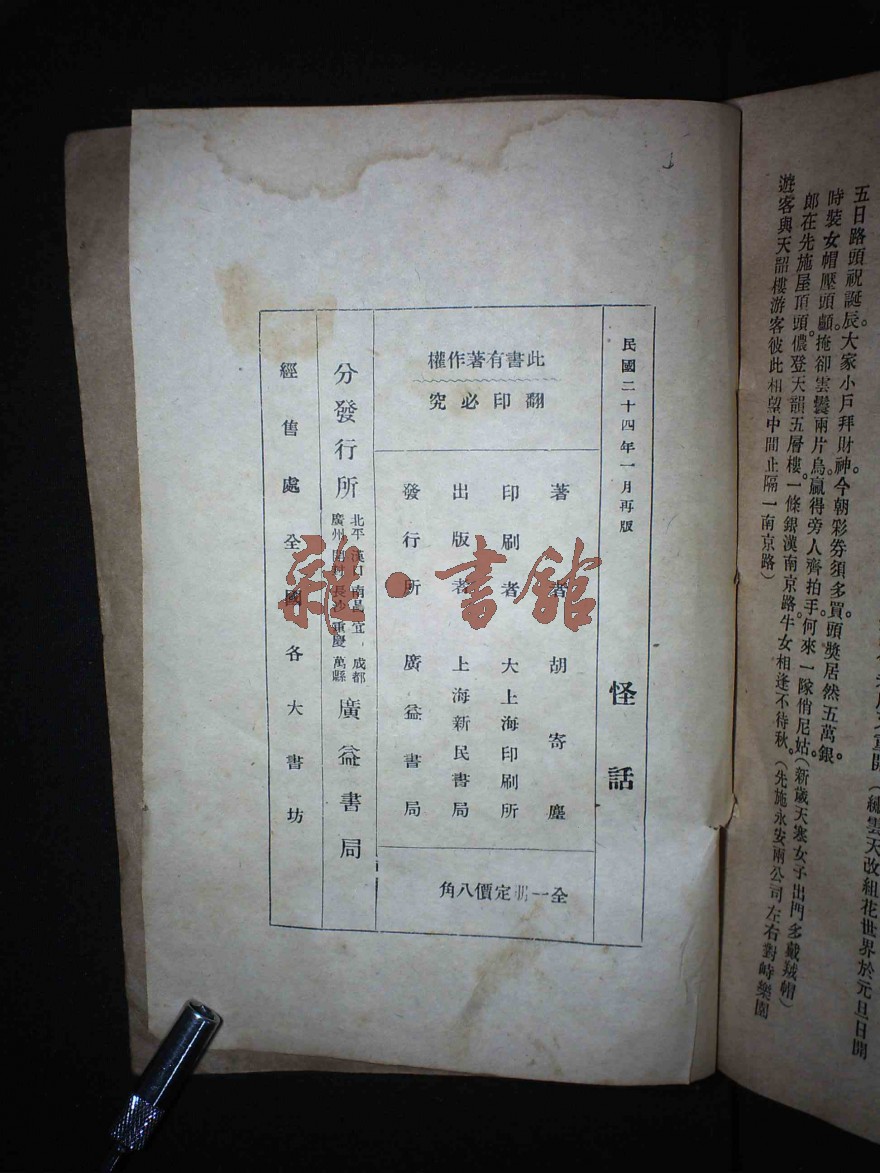 (繡雲天改組花世界於元旦日開
五日路頭祝誕辰。大家小戶拜財神。今朝彩券須多買。頭獎居然五萬銀。
時裝女帽壓頭顱。掩卻雲鬟兩片烏。贏得旁人齊拍手。何來一隊俏尼姑。(新歲天寒女子出門多戴絨帽)
郎在先施屋頂頭。儂登天韻五層樓。一條銀漢南京路。牛女相逢不待秋。(先施永安兩公司左右對峙樂園
遊客與天韶樓游客彼此相望中間止隔一南京路)
民國二十四年一月再版
怪話
此書有著作權
翻印必究
著者 胡寄塵
印刷者 大上海印刷所
出版者 上海新民書局
發行所 廣益書局
全一冊定價八角
分發行所
北平 漢口 南昌 宜 成都
廣州 開封 長沙 重慶 萬縣
廣益書局
經售處全國各大書坊
雜·書館